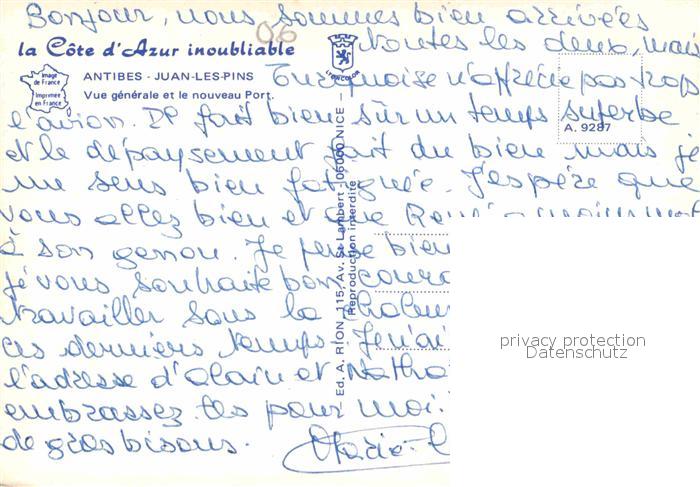 Bonjour, nous sommes bien arrivées
06
la Côte d'Azur inoubliable
toutes les deux, mais
Image de France
Imprimée en France
LYONCOLOR
ANTIBES - JUAN-LES-PINS
Turquoise n'apprécie pas trop
Vue générale et le nouveau Port.
l'avion. Il fait bien sûr un temps superbe
A. 9287
et le dépaysement fait du bien mais je
me sens bien fatiguée. J'espère que
vous allez bien et que René a moins mal
à son genou. Je pense bien
je vous souhaite bon coura
travailler sous la chaleur
ces derniers temps. Je n'ai
l'adresse d'Alain et Natha
embrassez les pour moi.
de gros bisous. Marie-
Ed. A. RION, 115, Av. St-Lambert - 06000 NICE -
Reproduction interdite
privacy protection
Datenschutz